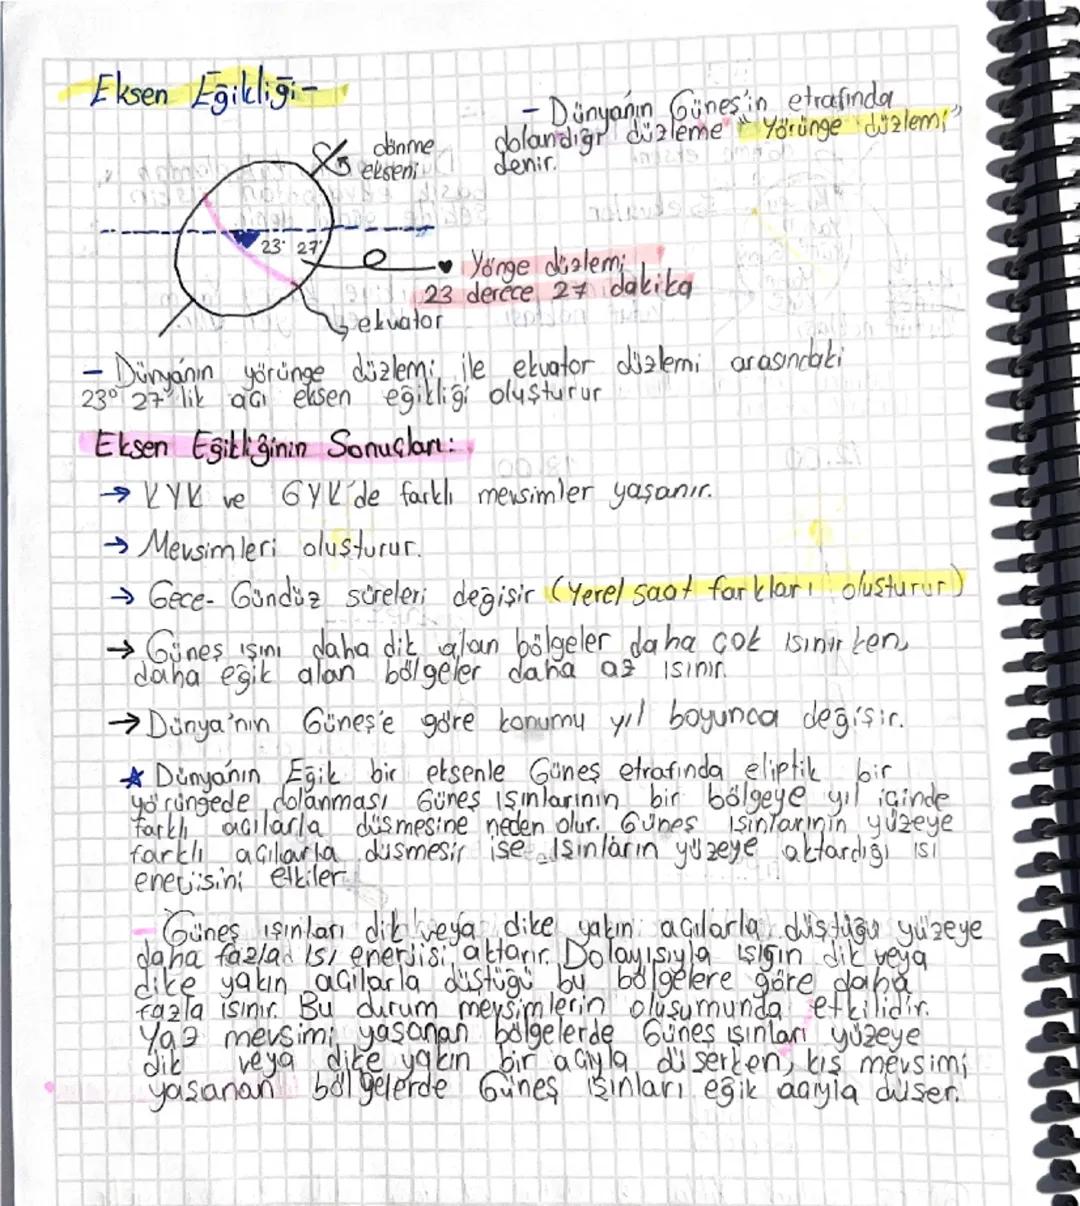 Eksen Eğikliği-
- Dünyanın Güneş'in etrafında
dolandığı düzleme "Yörünge düzlemi"
denir.
dönme
ekseni
23° 27'
Yönge düzlemi
23 derece 27 dakika
ekvator
- Dünyanın yörünge düzlemi ile ekvator düzlemi arasındaki
23° 27' lik açı eksen eğikliği oluşturur
Eksen Eğikliğinin Sonuçları:
→ KYK ve GYK'de farklı mevsimler yaşanır.
→ Mevsimleri oluşturur.
→ Gece- Gündüz süreleri değişir (Yerel saat farkları oluşturur)
→ Güneş ışını daha dik alan bölgeler daha çok ısınırken,
daha eğik alan bölgeler daha az ısınır.
→ Dünya'nın Güneş'e göre konumu yıl boyunca değişir.
★ Dünyanın Eğik bir eksenle Güneş etrafında eliptik bir
yörüngede dolanması Güneş ışınlarının bir bölgeye yıl içinde
farklı açılarla düşmesine neden olur. Güneş ışınlarının yüzeye
farklı açılarla düşmesi ise ışınların yüzeye aktardığı ısı
enerjisini etkiler.
- Güneş ışınları dik veya dike yakın açılarla düştüğü yüzeye
daha fazla ısı enerjisi aktarır. Dolayısıyla ışığın dik veya
dike yakın açılarla düştüğü bu bölgelere göre daha
fazla ısınır. Bu durum mevsimlerin oluşumunda etkilidir.
Yaz mevsimi yaşanan bölgelerde Güneş ışınları yüzeye
dik veya dike yakın bir açıyla düşerken, kış mevsimi
yaşanan bölgelerde Güneş ışınları eğik açıyla düşer.